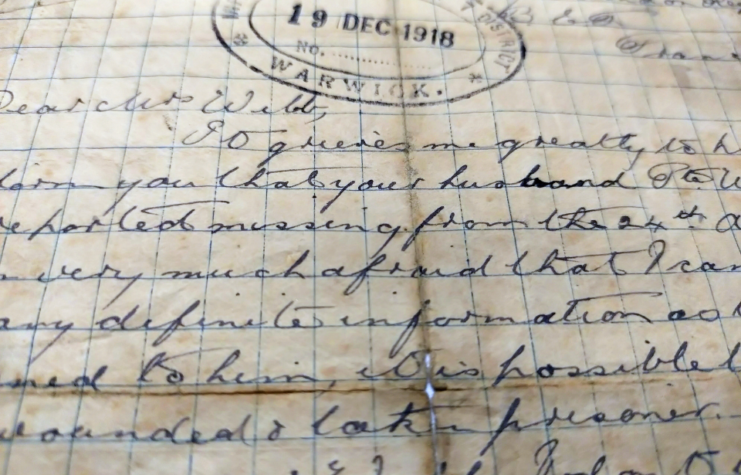 19 DEC 1918
No.
DISTRICT
WARWICK.
B. E. F.
Dear Mrs Webb,
It grieves me greatly to h
form you that your husband Pte W
reported missing from the 24th
very much afraid that I can
any definite information as t
ned to him, it is possible t
wounded & taken prisoner.